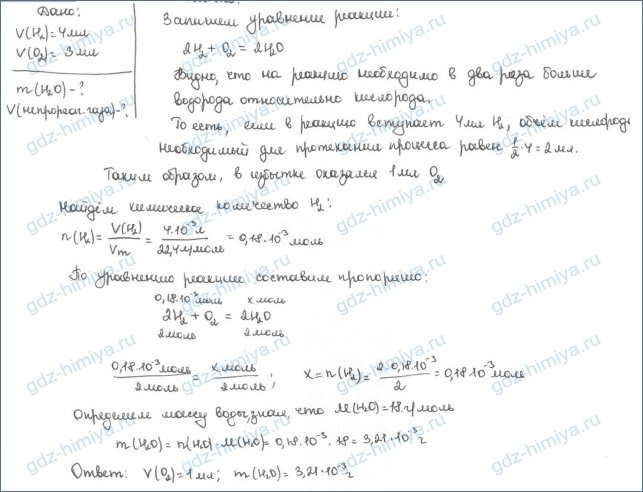 Дано:
V(H₂)=4мл
V(O₂)=3мл
m(H₂O)-?
V(непрореаг.газа)-?
Запишем уравнение реакции:
2H₂+O₂=2H₂O
Видно, что на реакцию необходимо в два раза больше
водорода относительно кислорода.
То есть, если в реакцию вступает 4мл H₂, объём кислорода
необходимый для протекания процесса равен ½·4=2мл.
Таким образом, в избытке оказался 1мл O₂
Найдём химическое количество H₂:
n(H₂)=V(H₂)/Vm=4·10⁻³л/22,4л/моль=0,18·10⁻³моль
По уравнению реакции составим пропорцию:
0,18·10⁻³моль х моль
2H₂+O₂=2H₂O
2моль 2моль
0,18·10⁻³моль/2моль=х моль/2моль; х=n(H₂)=2·0,18·10⁻³/2=0,18·10⁻³моль
Определим массу воды, зная, что M(H₂O)=18г/моль
m(H₂O)=n(H₂O)·M(H₂O)=0,18·10⁻³·18=3,21·10⁻³г
Ответ: V(O₂)=1мл; m(H₂O)=3,21·10⁻³г
gdz-himiya.ru